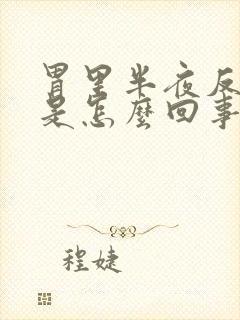 胃里半夜反
是怎麽回事
程婕